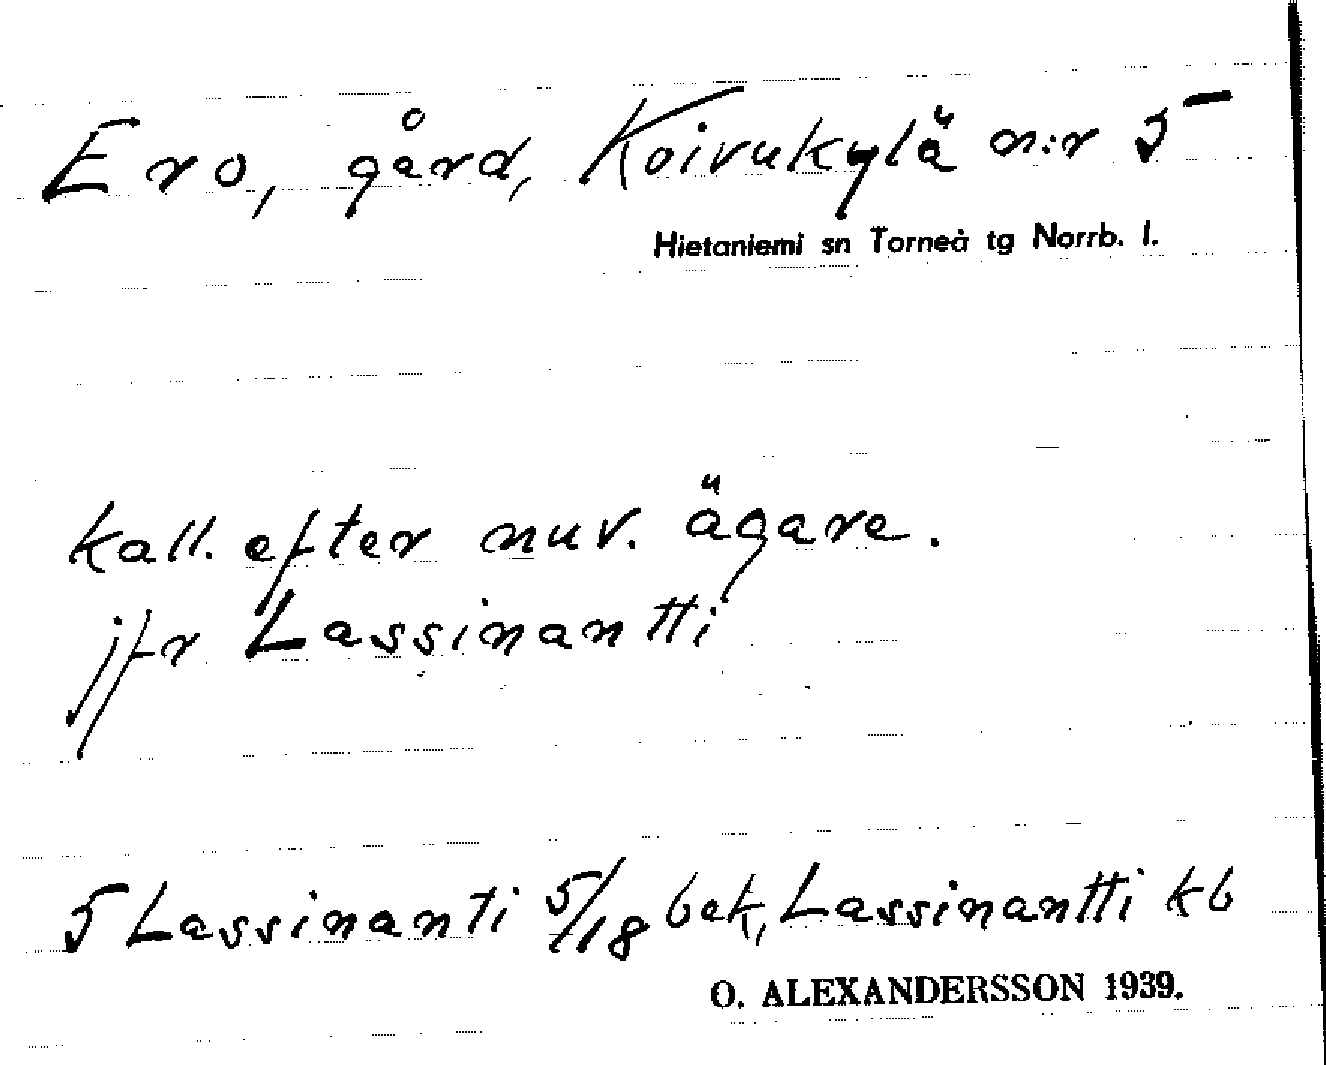 Ero, gård, Koivukylä n:r 5
Hietaniemi sn Torneå tg Norrb. l.
kall. efter nuv. ägare.
jfr Lassinantti
5 Lassinanti 5/18 bek, Lassinantti kb
O. ALEXANDERSSON 1939.